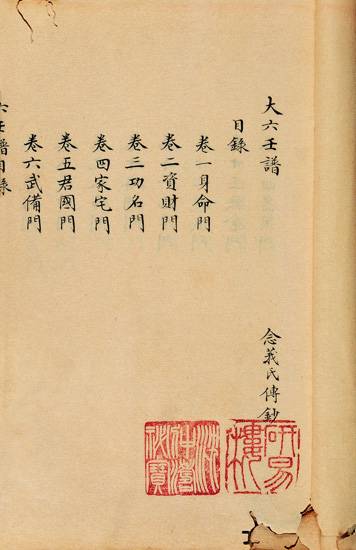 大六壬譜
目錄
念義氏傳鈔
卷一身命門
卷二資財門
卷三功名門
卷四家宅門
卷五君國門
卷六武備門
六壬譜目錄
研易樓
沈仲濤
秘寶